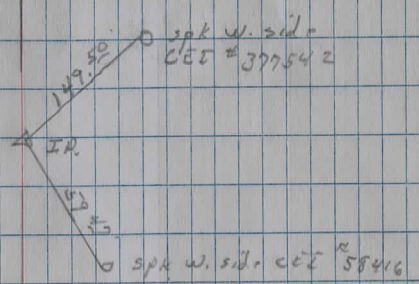 spk w. side
CEI # 377542
149.50
I.P.
spk w. side CEI # 58416